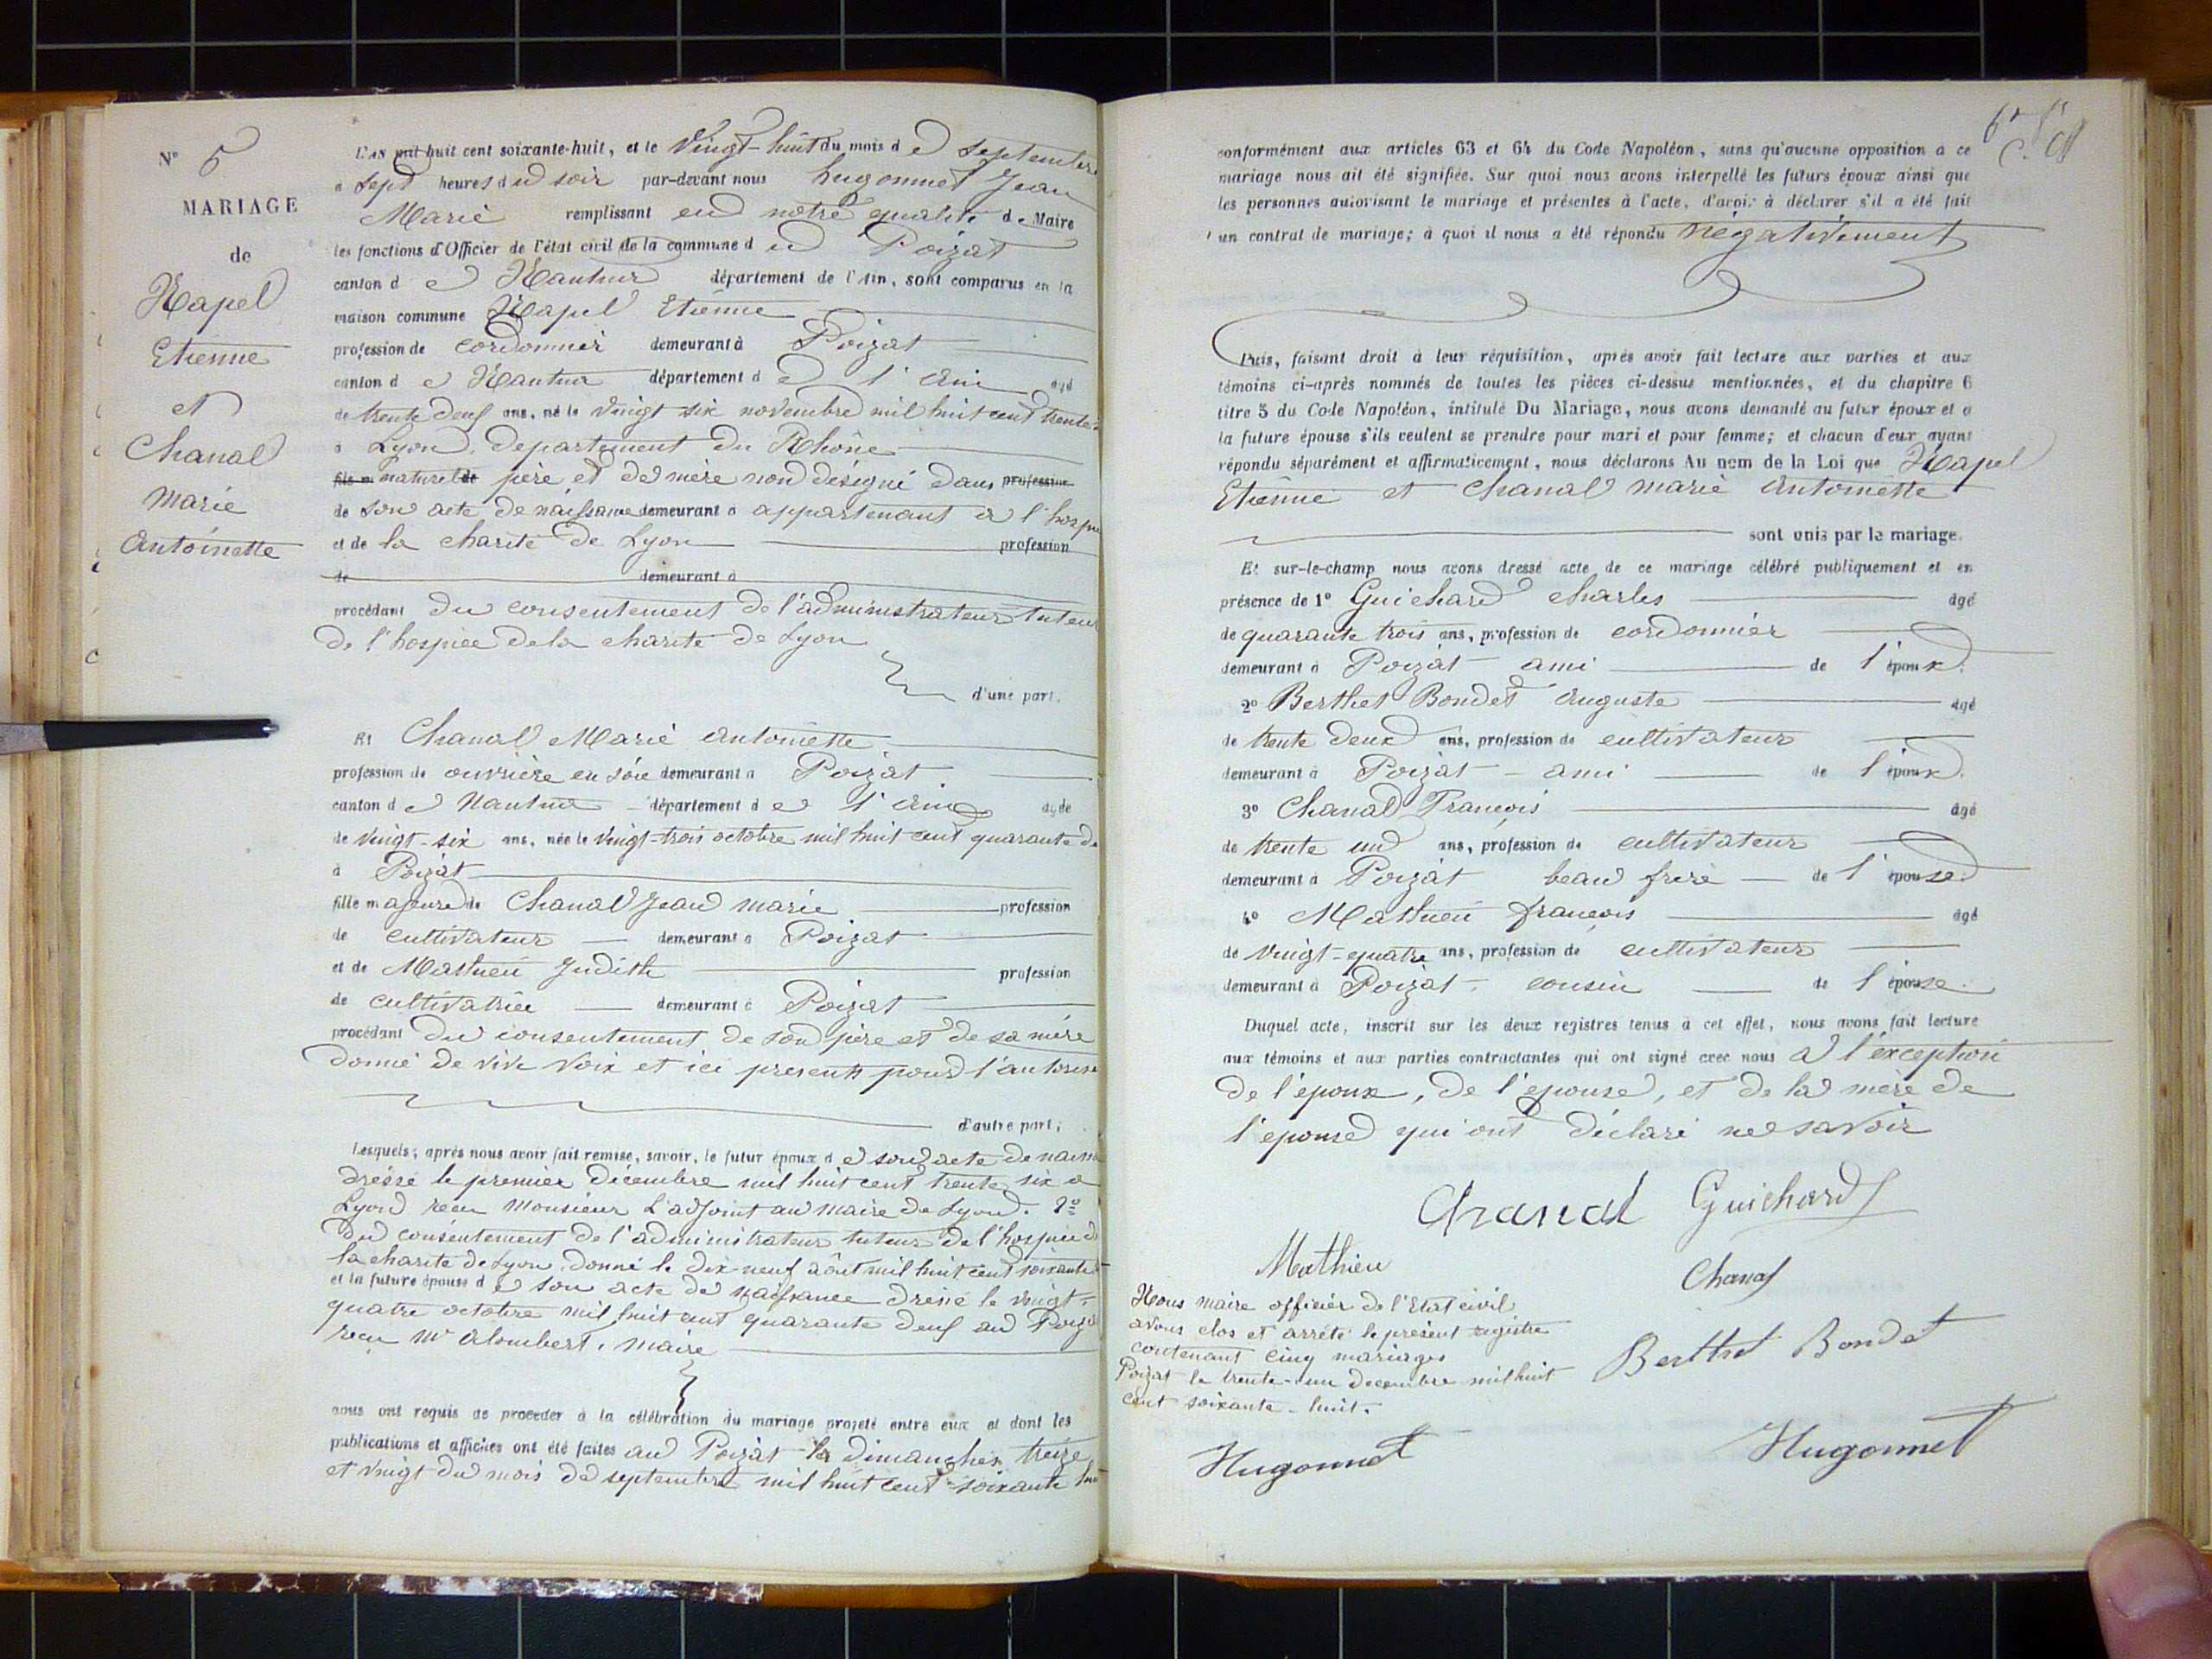 N° 5
MARIAGE
de
Napel
Etienne
et
Chanal
Marie
Antoinette
L'AN mil huit cent soixante-huit, et le vingt-huit du mois d e septembre
a sept heures d u soir par-devant nous hugonnet Jean
Marie remplissant en notre qualité d e Maire
les fonctions d'Officier de l'état civil de la commune d u Poizat
canton d e Nantua département de l'Ain, sont comparus en la
maison commune Napel Etienne
profession de cordonnier demeurant à Poizat
canton d e Nantua département d e l'Ain agé
de trente deux ans, né le vingt six novembre mil huit cent trente
à Lyon, departement du Rhône
fils naturel de père et de mère non désigné dans profession
de son acte de naissance demeurant à appartenant à l'hospi
et de la charité de Lyon profession
de demeurant à
procédant du consentement de l'administrateur tuteur
de l'hospice de la charité de Lyon
d'une part.
Et Chanal Marie Antoinette
profession de ouvrière en soie demeurant à Poizat
canton d e Nantua département d e l'Ain agée
de vingt-six ans, née le vingt-trois octobre mil huit cent quarante d
à Poizat
fille majeure de Chanal Jean marie profession
de cultivateur demeurant à Poizat
et de Mathieu Judith profession
de cultivatrice demeurant à Poizat
procédant du consentement de son père et de sa mère
donné de vive voix et ici presents pour l'autoris
d'autre part;
Lesquels, après nous avoir fait remise, savoir, le futur époux d e son acte de naiss
dressé le premier décembre mil huit cent trente six a
Lyon reçu Monsieur L'adjoint au maire de Lyon. 2°
du consentement de l'administrateur tuteur de l'hospice d
la charité de Lyon, donné le dix-neuf août mil huit cent soixante
et la future épouse d e son acte de naissance dressé le vingt-
quatre octobre mil huit cent quarante deux au Poizat
reçu Mr Alombert, maire
nous ont requis de procéder à la célébration du mariage projeté entre eux et dont les
publications et affiches ont été faites au Poizat les dimanches treize
et vingt du mois de septembre mil huit cent soixante huit
conformément aux articles 63 et 64 du Code Napoléon, sans qu'aucune opposition à ce
mariage nous ait été signifiée. Sur quoi nous avons interpellé les futurs époux ainsi que
les personnes autorisant le mariage et présentes à l'acte, d'avoir à déclarer s'il a été fait
un contrat de mariage; à quoi il nous a été répondu négativement
Puis, faisant droit à leur réquisition, après avoir fait lecture aux parties et aux
témoins ci-après nommés de toutes les pièces ci-dessus mentionnées, et du chapitre 6
titre 5 du Code Napoléon, intitulé Du Mariage, nous avons demandé au futur époux et à
la future épouse s'ils veulent se prendre pour mari et pour femme; et chacun d'eux ayant
répondu séparément et affirmativement, nous déclarons Au nom de la Loi que Napel
Etienne et Chanal marie Antoinette
sont unis par le mariage.
Et sur-le-champ nous avons dressé acte de ce mariage célébré publiquement et en
présence de 1° Guichard charles âgé
de quarante trois ans, profession de cordonnier
demeurant à Poizat ami de l'époux.
2° Berthet Bondet Auguste âgé
de trente deux ans, profession de cultivateur
demeurant à Poizat - ami de l'époux.
3° Chanal François âgé
de trente un ans, profession de cultivateur
demeurant à Poizat beau frère de l'épouse
4° Mathieu françois âgé
de vingt-quatre ans, profession de cultivateur
demeurant à Poizat. cousin de l'épouse.
Duquel acte, inscrit sur les deux registres tenus à cet effet, nous avons fait lecture
aux témoins et aux parties contractantes qui ont signé avec nous à l'exception
de l'époux, de l'épouse, et de la mère de
l'épouse qui ont déclaré ne savoir
Chanal Guichard
Mathieu
Chanal
Nous maire officier de l'Etat civil
avons clos et arrété le présent registre
contenant cinq mariages
Poizat le trente-un decembre mil huit
cent soixante-huit.
Berthet Bondet
Hugonnet
Hugonnet